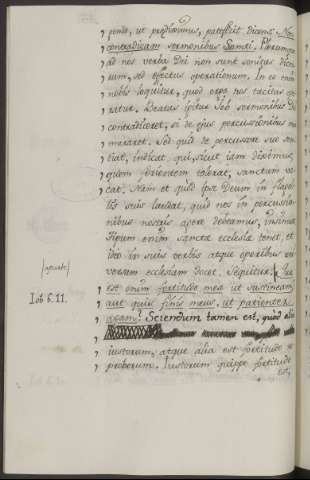 pendo, ut prædiximus, patefecit dicens: Non
contradicam sermonibus Sancti. Plerumque
ad nos verba Dei non sunt sonitus dicto-
rum, sed effectus operationum. In eo enim
nobis loquitur, quod erga nos tacitus ope-
ratur. Beatus igitur Job sermonibus Dei
contradiceret, si de ejus percussionibus mur-
muraret. Sed quid de percussore suo sen-
tiat, indicat, qui, sicut jam diximus,
quem ferientem tolerat, sanctum vo-
cat. Nam et quid ipse Deum in flagel-
lis suis laudat, quid nos in percussio-
nibus nostris agere debeamus, insinuat
Figuram enim sancta ecclesia tenet, et
ideo in suis verbis atque operibus uni-
versam ecclesiam docet. Sequitur: Quæ
est enim fortitudo mea ut sustineam,
Iob 6. 11.
aut quis finis meus, ut patienter
agam? Sciendum tamen est, quod alia
iustorum, atque alia est fortitudo re-
proborum. Iustorum quippe fortitudo
est,